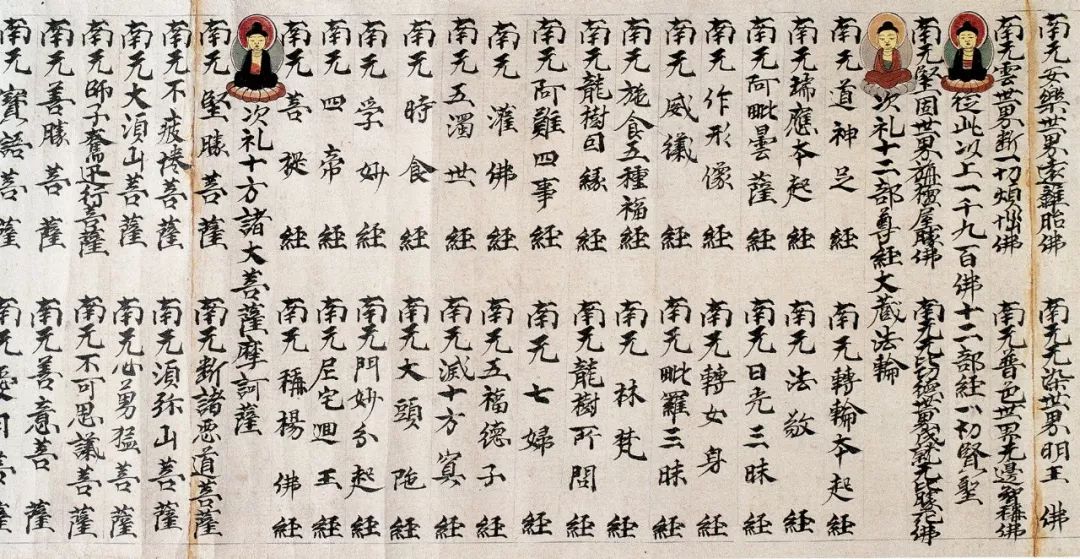 南无安樂世界離胎佛 南无无染世界明王佛
南无雲世界断一切煩惱佛 南无普色世界无邊智稱佛
從此以上一千九百佛十二部経一切賢聖
南无堅固世界旃檀屋勝佛 南无无勝花佛
次礼十二部尊経大蔵法輪
南无道神足経 南无轉輪本起経
南无瑞應本起経 南无法敬経
南无阿毗曇薩経 南无日光三昧経
南无作形像経 南无轉女身経
南无威儀経 南无毗羅三昧経
南无施食五種福経 南无林梵経
南无龍樹因緣経 南无龍樹所問経
南无阿難四事経 南无七婦経
南无灌佛経 南无五福德子経
南无五濁世経 南无滅十方冥経
南无時食経 南无大頭陁経
南无学妙経 南无門妙分起経
南无四帝経 南无尼宅迴王経
南无菩経 南无稱楊佛経
次礼十方諸大菩薩摩訶薩
南无堅勝菩薩 南无断諸惡道菩薩
南无不疲惓菩薩 南无須弥山菩薩
南无大須山菩薩 南无心勇猛菩薩
南无師子奮迅行菩薩 南无不可思議菩薩
南无善勝菩薩 南无善意菩薩
南无寳語菩薩 南无菩薩